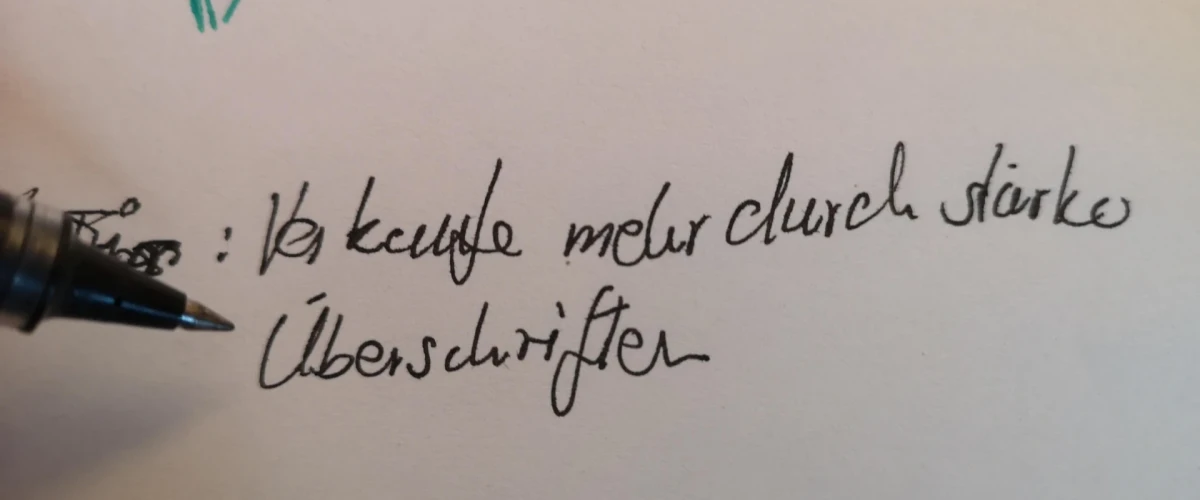 : Verkaufe mehr durch starke
Überschriften